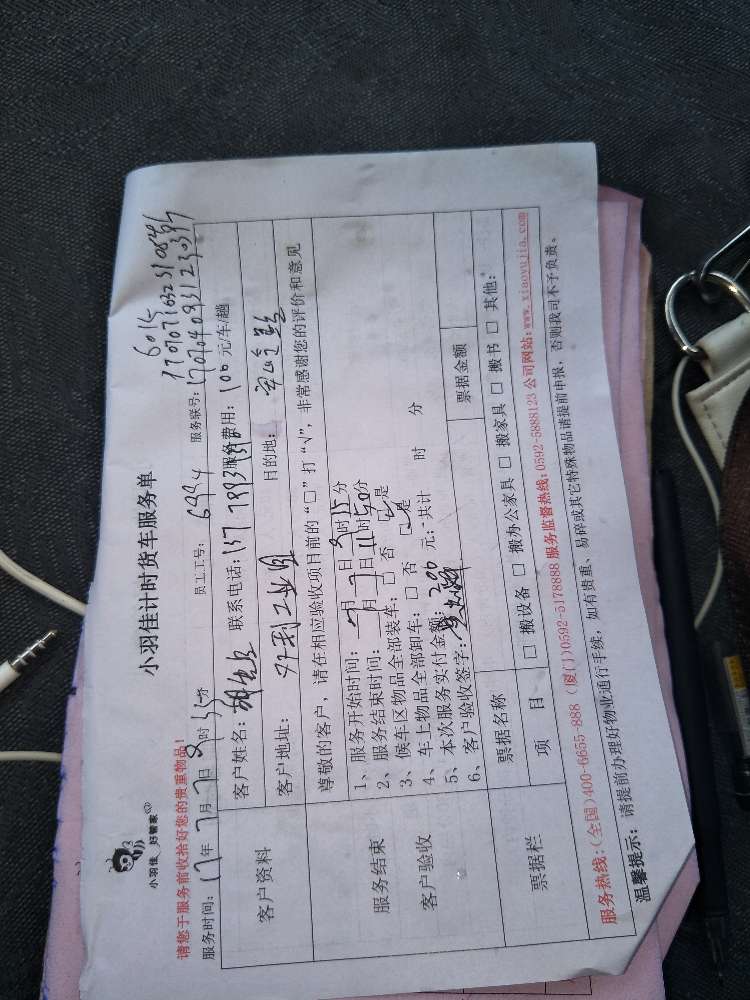 小羽佳 好管家
小羽佳计时货车服务单
请您于服务前收拾好您的贵重物品!
6015
服务时间: 17年 7月 7日 时 分 员工工号: 6994 服务联号:
客户资料
客户姓名: 联系电话: 服务费用: 100 元/车/趟
客户地址: 工业园 目的地:
服务结束
客户验收
尊敬的客户，请在相应验收项目前的“□”打“√”，非常感谢您的评价和意见
1、服务开始时间: 7月7日 时15分
2、服务结束时间: 月7日11时50分
3、候车区物品全部装车: □ 否 □是
4、车上物品全部卸车: □ 否 □是
5、本次服务实付金额: 200 元; 共计 时 分
6、客户验收签字:
票据栏
票据名称 票据金额
项 目 □ 搬设备 □ 搬办公家具 □ 搬家具 □ 搬书 □ 其他:
服务热线:(全国)400-6655-888 (厦门)0592-5178888 服务监督热线:0592-5888123 公司网站:www.xiaoyujia.com
温馨提示: 请提前办理好物业通行手续，如有贵重、易碎或其它特殊物品请提前申报，否则我司不予负责。